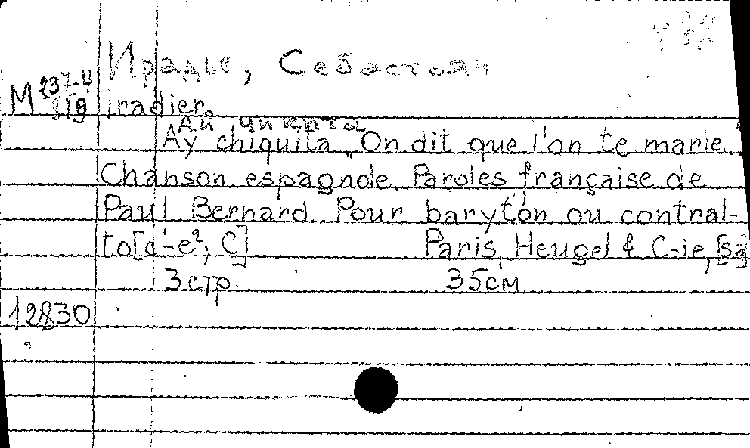 Ирадье, Себастьян
M 237-U
319
Iradier.
Ай чикита
Ay chiquita. On dit que l'on te marie.
Chanson espagnole. Paroles française de
Paul Bernard. Pour baryton ou contral-
to [d'-e², C] Paris, Heugel & C-ie, [sa]
3 стр. 35 см
12830